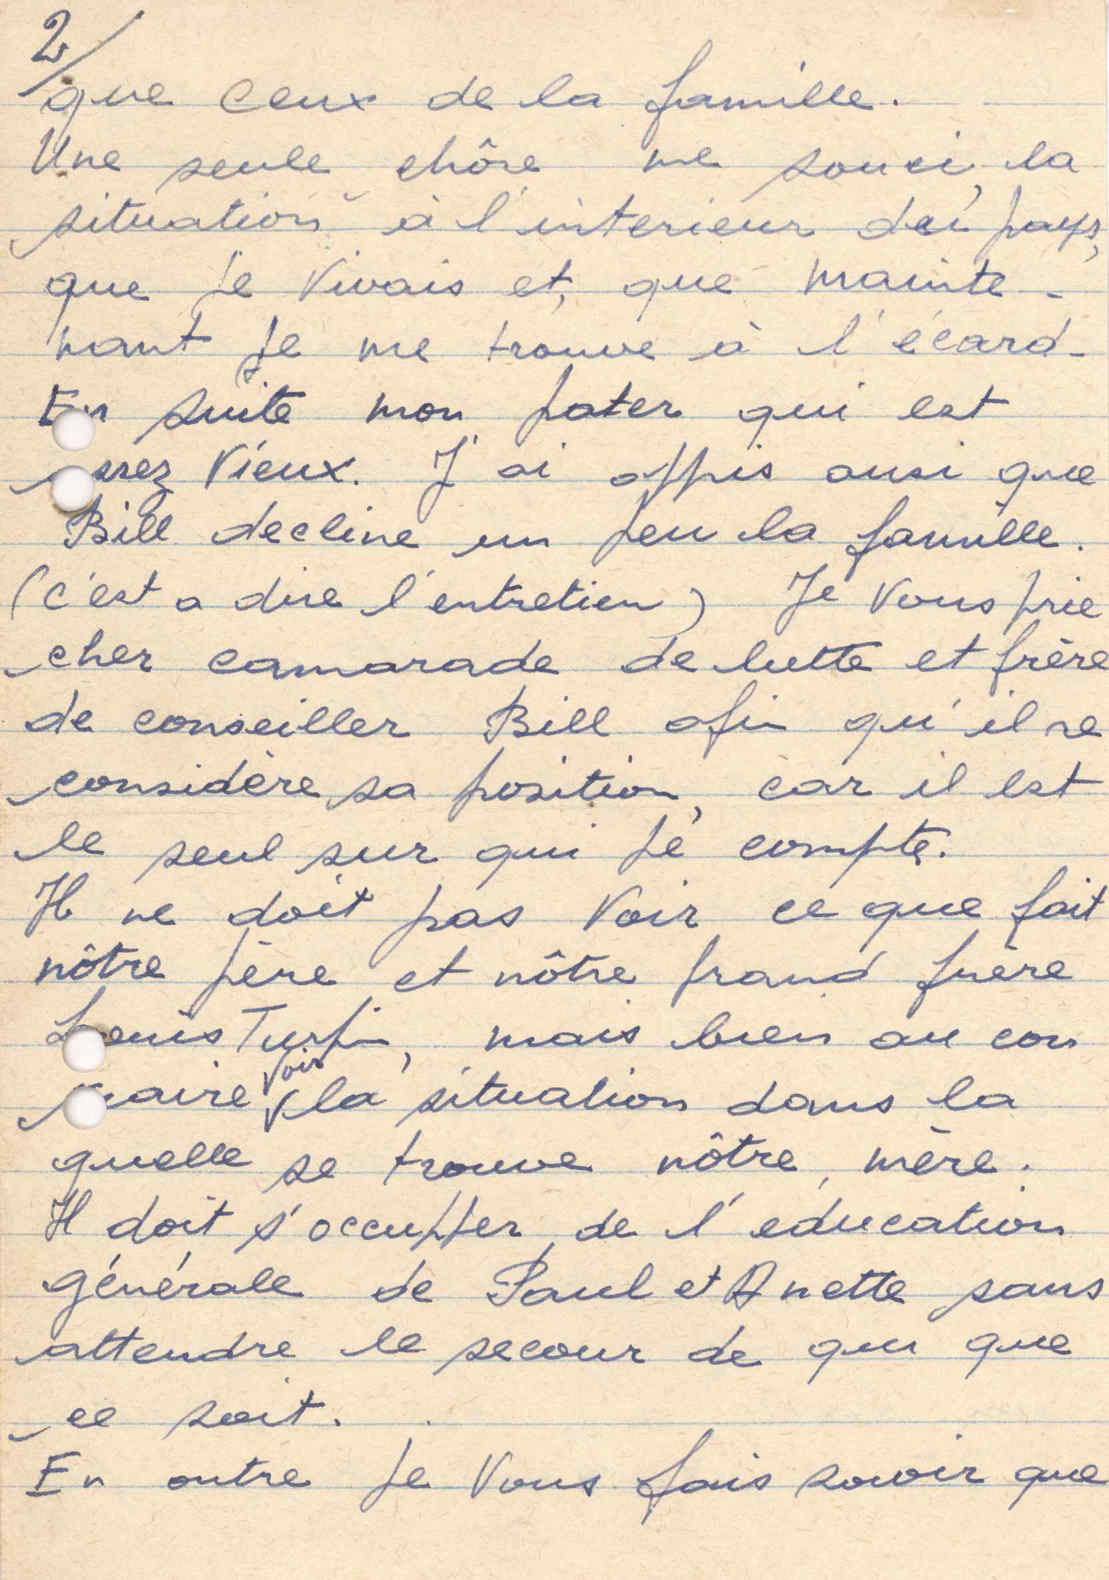 2/
que ceux de la famille.
Une seule chôse me souci, la
situation à l'interieur dei pays,
que je vivais et, que mainte -
nant je me trouve à l'écard-
En suite mon pater qui est
assez vieux. J'ai appis ausi que
Bill decline un peu la famille.
(c'est a dire l'entretien) Je vous prie
cher camarade de lutte et frère
de conseiller Bill afin qu'il re
considère sa position, car il est
le seul sur qui je compte.
Il ne doit pas voir ce que fait
nôtre père et nôtre frand frère
Louis Turpin, mais bien au con
traire voir la situation dans la
quelle se trouve nôtre mère.
Il doit s'occupper de l'education
générale de Paul et Anette sans
attendre le secour de qui que
ce soit.
En outre je vous fais savoir que